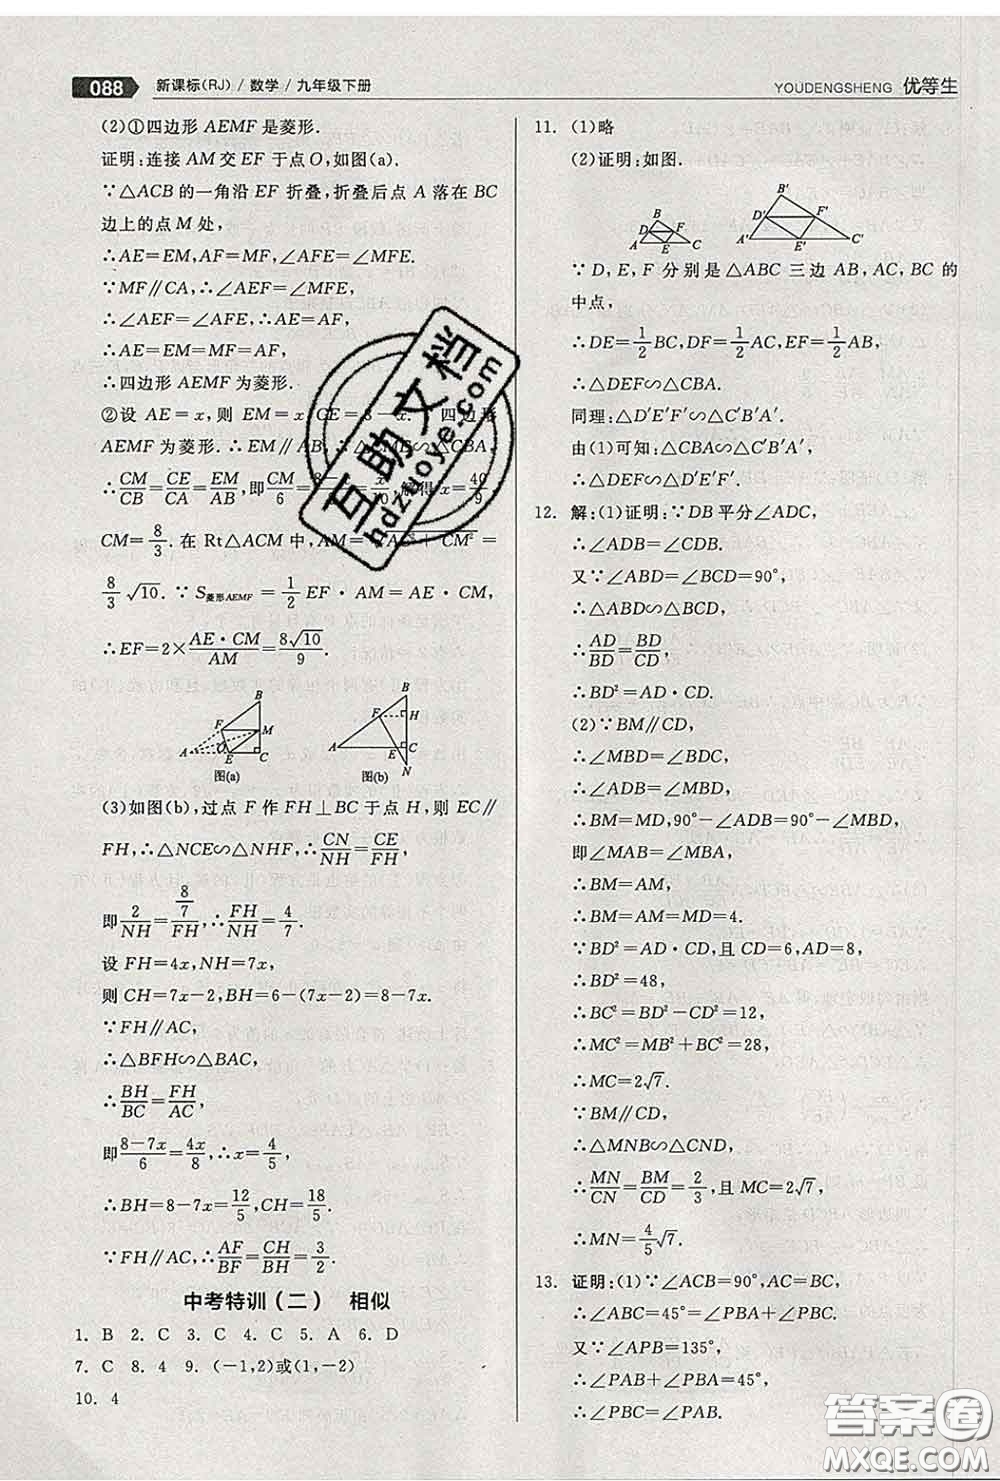 088 新课标(RJ) / 数学 / 九年级下册
YOUDENGSHENG 优等生
(2)①四边形 AEMF 是菱形.
证明:连接 AM 交 EF 于点 O,如图(a).
∵△ACB 的一角沿 EF 折叠,折叠后点 A 落在 BC
边上的点 M 处,
∴AE=EM,AF=MF,∠AFE=∠MFE.
∵MF∥CA,∴∠AEF=∠MFE,
∴∠AEF=∠AFE,∴AE=AF,
∴AE=EM=MF=AF,
∴四边形 AEMF 为菱形.
②设 AE=x,则 EM=x,CE=8-x. 四边形
AEMF 为菱形.∴EM∥AB,∴△CME∽△CBA,
∴CM/CB=CE/CA=EM/AB,即CM/6=8-x/ =x/10,解得x=40/9,
CM=8/3. 在 Rt△ACM 中,AM=√AC²+CM²=
8/3 √10. ∵S菱形AEMF=1/2 EF·AM=AE·CM,
∴EF=2×AE·CM/AM=8√10/9.
B F M A O E C 图(a)
B F H A E C N 图(b)
(3)如图(b),过点 F 作 FH⊥BC 于点 H,则 EC∥
FH,∴△NCE∽△NHF,∴CN/NH=CE/FH,
即2/NH=8/7/FH,∴FH/NH=4/7.
设 FH=4x,NH=7x,
则 CH=7x-2,BH=6-(7x-2)=8-7x.
∵FH∥AC,
∴△BFH∽△BAC,
∴BH/BC=FH/AC,
即8-7x/6=4x/8,∴x=4/5,
∴BH=8-7x=12/5,CH=18/5.
∵FH∥AC,∴AF/BF=CH/BH=3/2.
中考特训(二) 相似
1. B 2. C 3. C 4. C 5. A 6. D
7. C 8. 4 9. (-1,2)或(1,-2)
10. 4
11. (1)略
(2)证明:如图.
B D F A E C B′ D′ F′ A′ E′ C′
∵D,E,F 分别是△ABC 三边 AB,AC,BC 的
中点,
∴DE=1/2BC,DF=1/2AC,EF=1/2AB,
∴△DEF∽△CBA.
同理:△D′E′F′∽△C′B′A′.
由(1)可知:△CBA∽△C′B′A′,
∴△DEF∽△D′E′F′.
12. 解:(1)证明:∵DB平分∠ADC,
∴∠ADB=∠CDB.
又∵∠ABD=∠BCD=90°,
∴△ABD∽△BCD,
∴AD/BD=BD/CD,
∴BD²=AD·CD.
(2)∵BM∥CD,
∴∠MBD=∠BDC,
∴∠ADB=∠MBD,
∴BM=MD,90°-∠ADB=90°-∠MBD,
即∠MAB=∠MBA,
∴BM=AM,
∴BM=AM=MD=4.
∵BD²=AD·CD,且 CD=6,AD=8,
∴BD²=48,
∴BC²=BD²-CD²=12,
∴MC²=MB²+BC²=28,
∴MC=2√7.
∵BM∥CD,
∴△MNB∽△CND,
∴MN/CN=BM/CD=2/3,且 MC=2√7,
∴MN=4/5√7.
13. 证明:(1)∵∠ACB=90°,AC=BC,
∴∠ABC=45°=∠PBA+∠PBC.
又∵∠APB=135°,
∴∠PAB+∠PBA=45°,
∴∠PBC=∠PAB.
互助文档
hdzuoye.com
答案圈
MXQE.COM